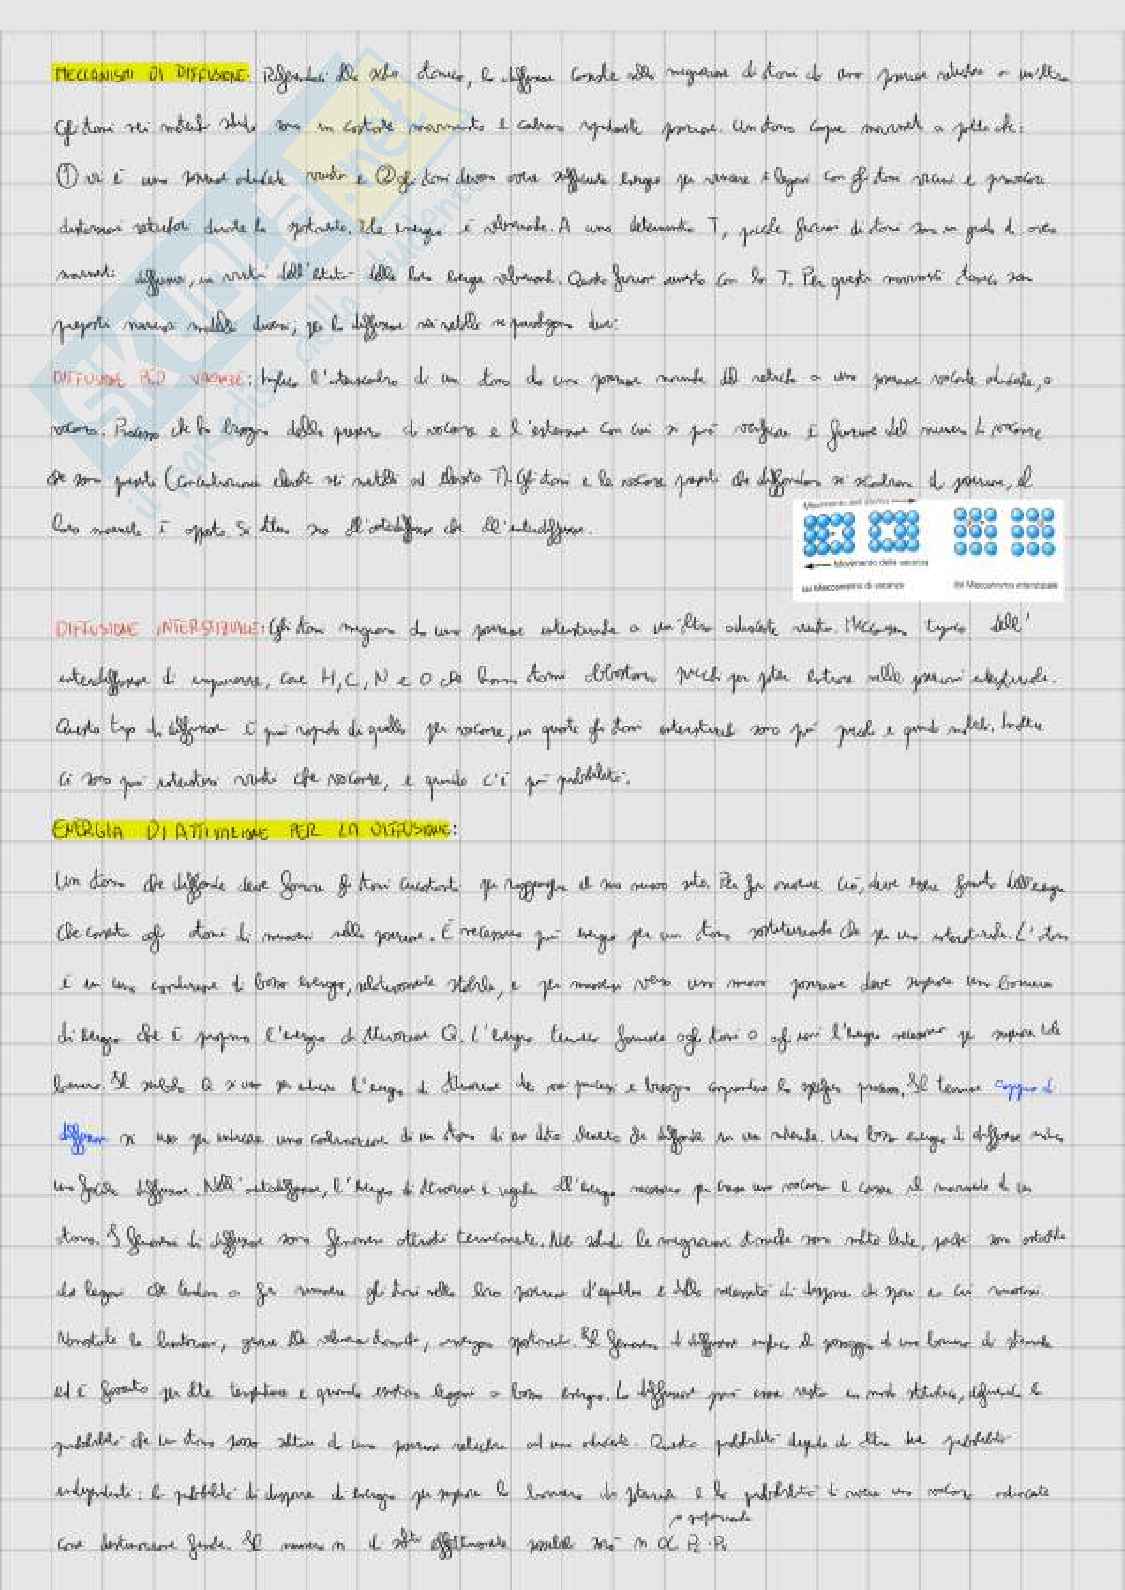 MECCANISMI DI DIFFUSIONE: la diffusione consiste nella migrazione di atomi da una posizione reticolare a un'altra
Gli atomi nei materiali solidi sono in costante movimento e cambiano posizione. Un atomo compie movimenti a patto che:
① vi è una posizione adiacente vuota e ② gli atomi devono avere sufficiente energia per vincere i legami con gli atomi vicini e provocare
distorsioni reticolari durante lo spostamento. Tale energia è vibrazionale. A una determinata T, piccole frazioni di atomi sono in grado di avere
movimenti diffusivi, in virtù dell' delle loro energie vibrazionali. Questa frazione aumenta con la T. Per questi movimenti atomici sono
proposti numerosi modelli diversi, per la diffusione nei metalli se ne due:
DIFFUSIONE PER VACANZE: Implica l'interscambio di un atomo da una posizione normale del reticolo a una posizione vacante adiacente, o
vacanza. Processo che ha bisogno della presenza di vacanze e l'estensione con cui si può verificare è funzione del numero di vacanze
che sono presenti (concentrazione elevate nei metalli ad elevate T). Gli atomi e le vacanze che diffondono si scambiano di posizione, il
loro movimento è opposto. Si sia all'autodiffusione che all'interdiffusione.
Movimento dell'atomo
Movimento della vacanza
(a) Meccanismo di vacanza
(b) Meccanismo interstiziale
DIFFUSIONE INTERSTIZIALE: Gli atomi migrano da una posizione interstiziale a un'altra adiacente vuota. Meccanismo tipico dell'
interdiffusione di impurezze, come H, C, N e O che hanno atomi abbastanza piccoli per poter entrare nelle posizioni interstiziali.
Questo tipo di diffusione è più rapido di quello per vacanze, in quanto gli atomi interstiziali sono più piccoli e quindi mobili. Inoltre
ci sono più interstizi vuoti che vacanze, e quindi c'è più probabilità.
ENERGIA DI ATTIVAZIONE PER LA DIFFUSIONE:
Un atomo che diffonde deve gli atomi circostanti per raggiungere il suo nuovo sito. Per far ciò, deve essere fornita dell'energia
che consenta agli atomi di muoversi nella posizione. È necessaria più energia per un atomo sostituzionale che per uno interstiziale. L'atomo
è in una condizione di bassa energia, relativamente stabile, e per muoversi verso una nuova posizione deve superare una barriera
di energia che è proprio l'energia di attivazione Q. L'energia termica fornisce agli atomi o agli ioni l'energia necessaria per superare tale
barriera. Il simbolo Q si usa per indicare l'energia di attivazione dei vari processi e bisogna comprendere lo specifico processo. Il termine coppia di
diffusione si usa per indicare una combinazione di un atomo di un dato elemento che diffonde in un materiale. Una bassa energia di diffusione indica
una facile diffusione. Nell'autodiffusione, l'energia di attivazione è uguale all'energia necessaria per creare una vacanza e causare il movimento di un
atomo. I fenomeni di diffusione sono fenomeni attivati termicamente. Nei solidi le migrazioni atomiche sono molto lente, poiché sono ostacolate
da legami che tendono a far rimanere gli atomi nella loro posizione d'equilibrio e dalla necessità di disporre di spazi in cui muoversi.
Nonostante la lentezza, grazie alla vibrazione atomica, avvengono spostamenti. Il fenomeno di diffusione implica il passaggio di una barriera di potenziale
ed è favorito per alte temperature e quando esistono legami a bassa energia. La diffusione può essere vista in modo statistico, definendo la
probabilità che un atomo possa saltare da una posizione reticolare ad una adiacente. Questa probabilità dipende da altre due probabilità
indipendenti: la probabilità di disporre di energia per superare la barriera di potenziale e la probabilità di avere una vacanza adiacente
è proporzionale
come destinazione finale. Il numero n di salti effettivamente possibili sarà n ∝ Pε · Pv